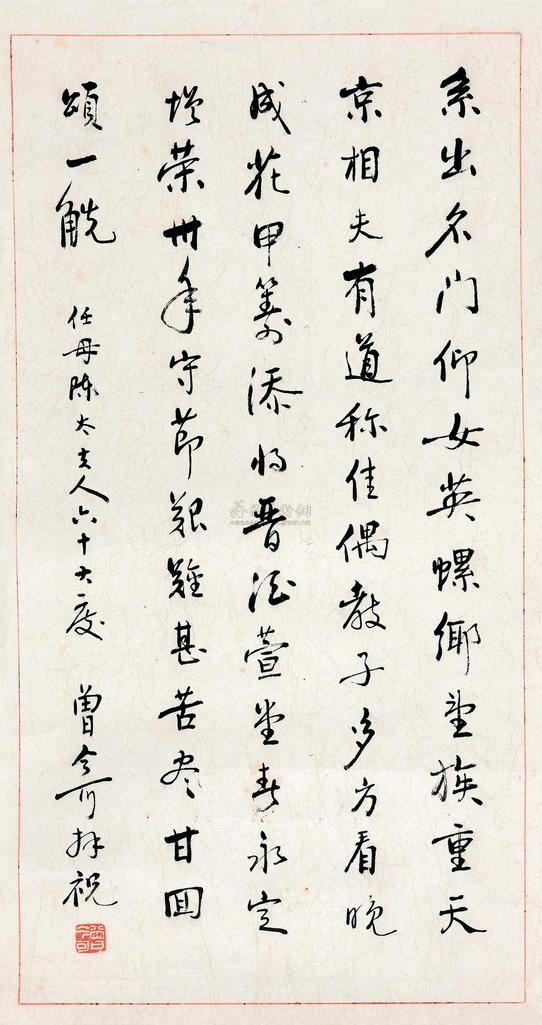 系出名门仰女英螺乡望族重天
京相夫有道称佳偶教子多方看晚
成花甲筹添将晋酒萱堂春永定
增荣卅年守节艰难甚苦尽甘回
颂一觥
任母陈太夫人六十大庆
曾今可拜祝